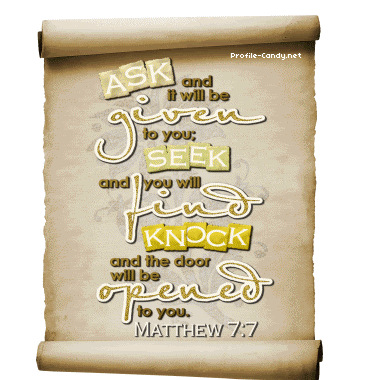 Profile-Candy.net
ASK and
it will be
given
to you;
SEEK
and you will
find
KNOCK
and the door
will be
opened
to you.
MATTHEW 7:7